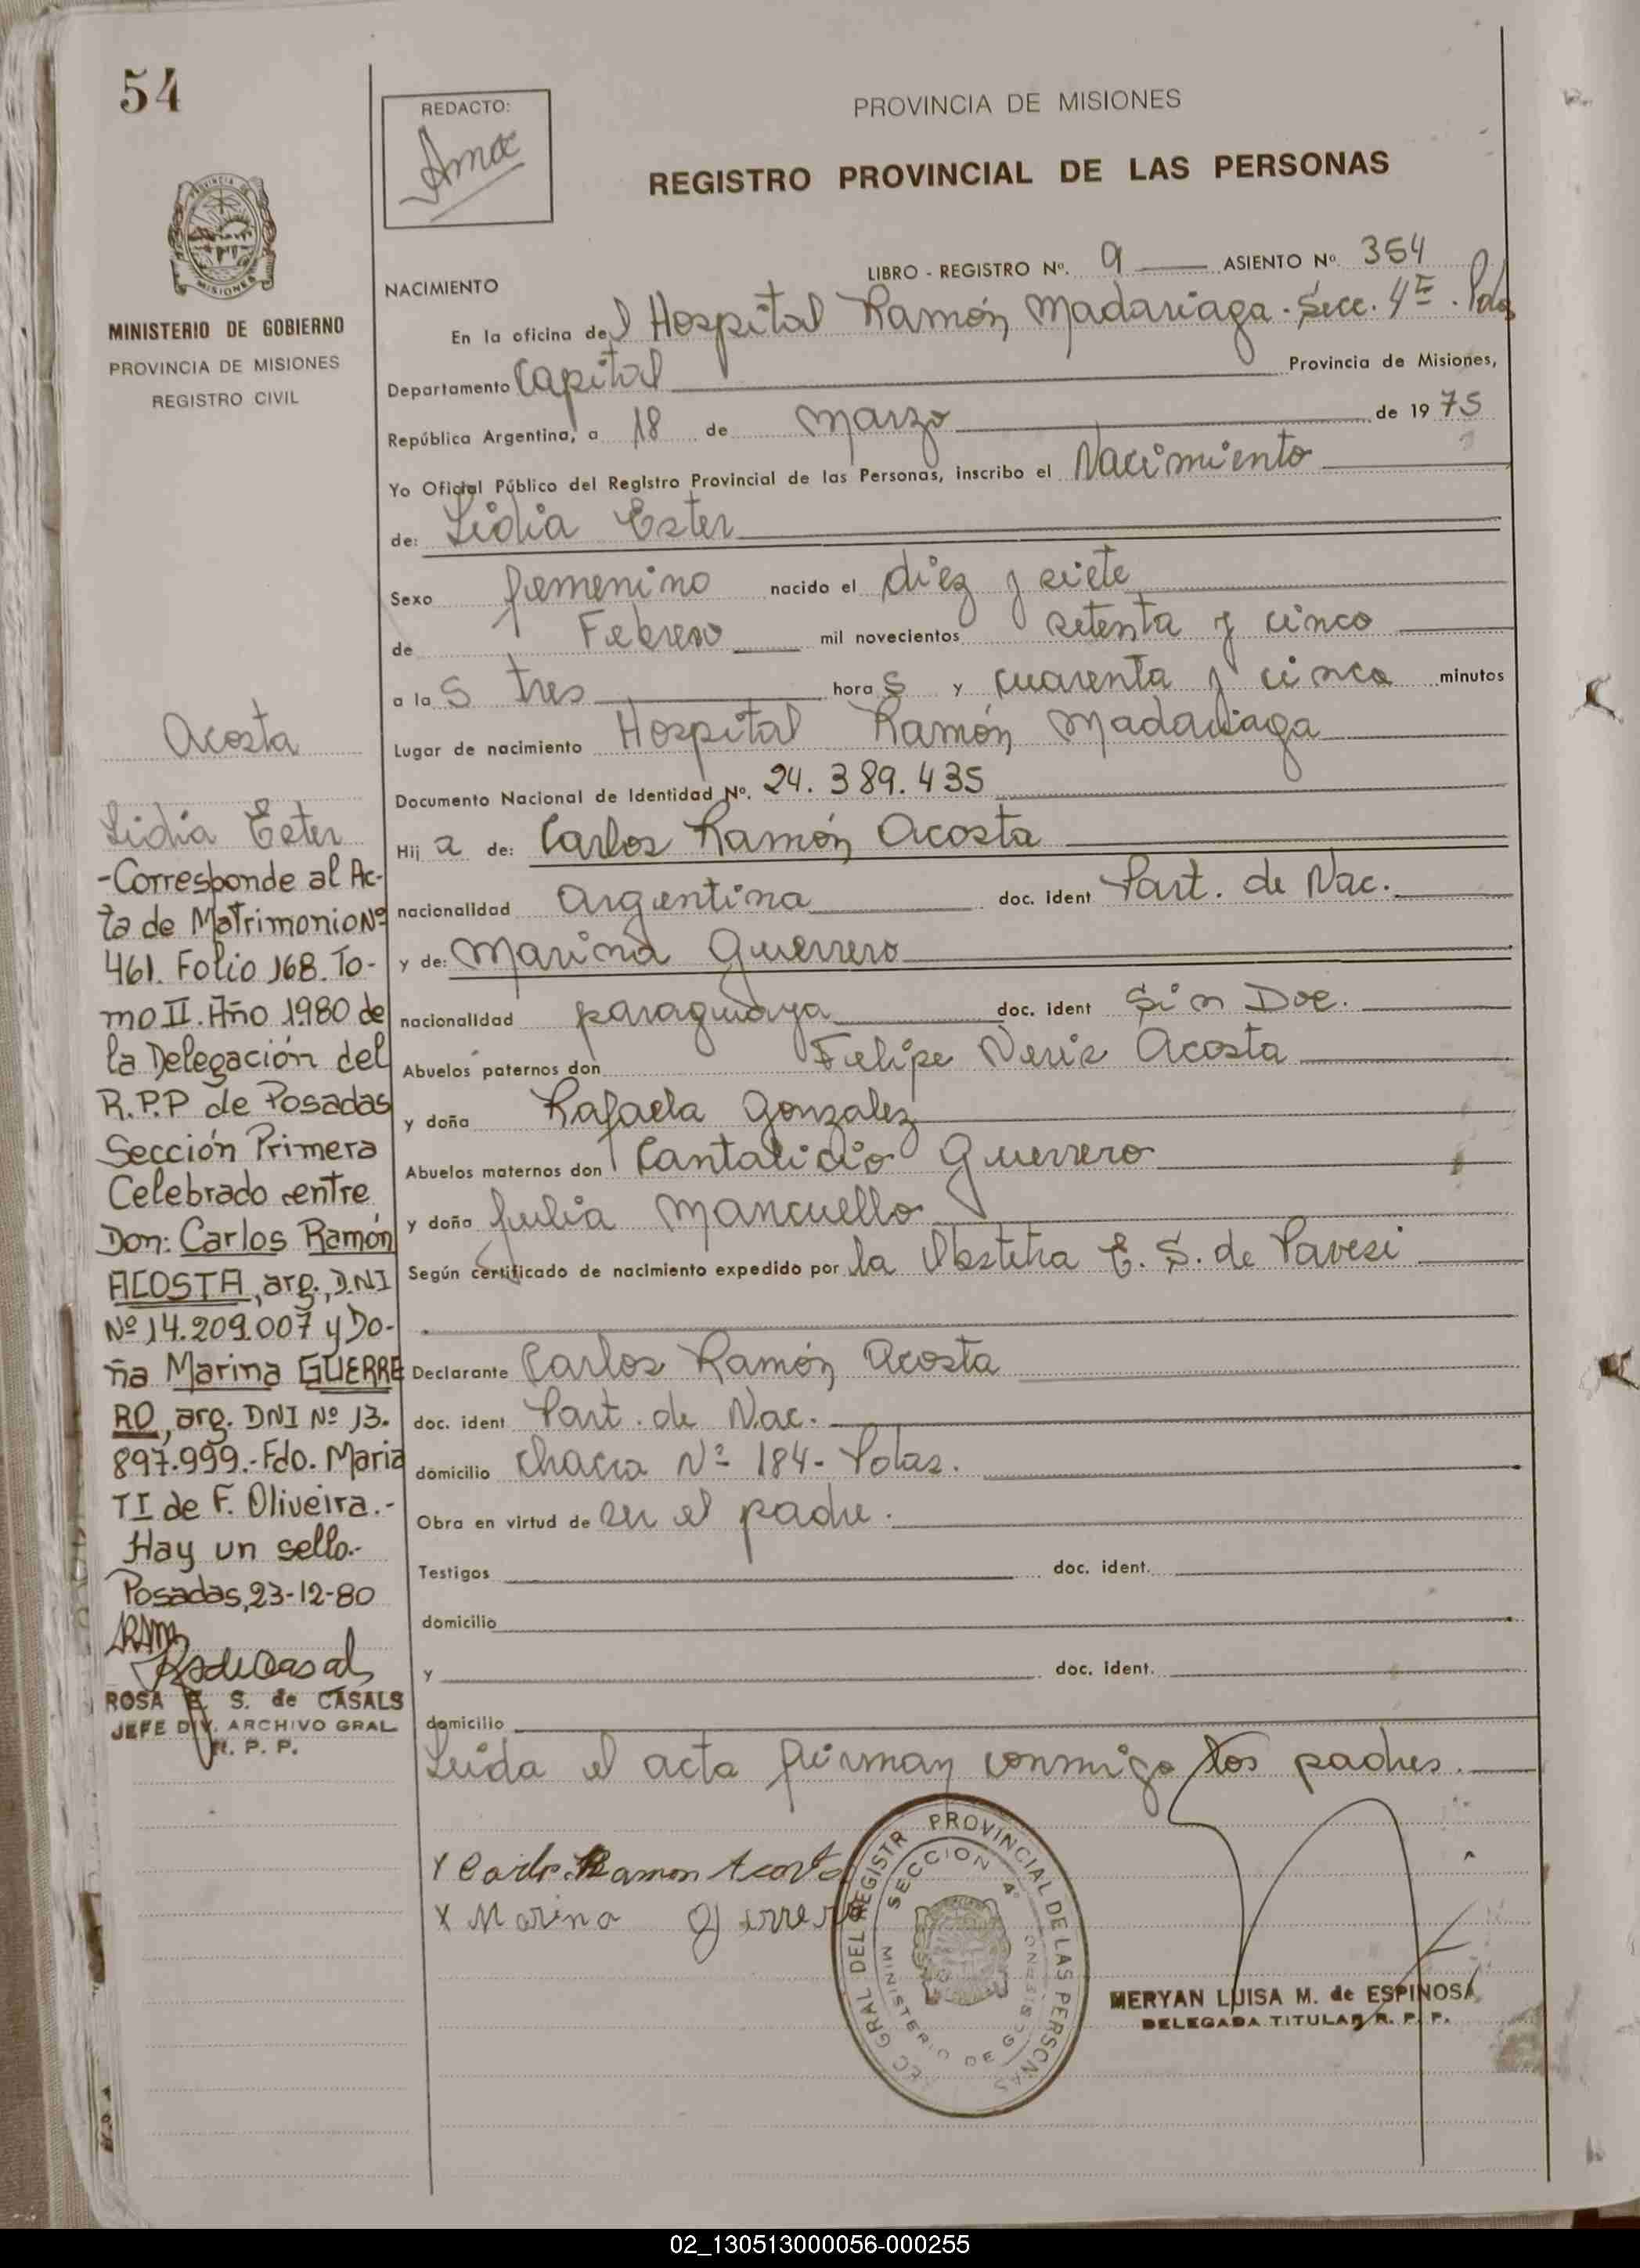 54
REDACTO:
PROVINCIA DE MISIONES
REGISTRO PROVINCIAL DE LAS PERSONAS
MINISTERIO DE GOBIERNO
PROVINCIA DE MISIONES
REGISTRO CIVIL
LIBRO - REGISTRO Nº. 9 ASIENTO Nº. 354
NACIMIENTO
En la oficina del Hospital Ramón Madariaga. Secc. 4ª. Pdas
Departamento Capital Provincia de Misiones,
República Argentina, a 18 de Marzo de 1975
Yo Oficial Público del Registro Provincial de las Personas, inscribo el Nacimiento
de: Lidia Ester
Sexo femenino nacido el diez y siete
de Febrero mil novecientos setenta y cinco
a las tres horas y cuarenta y cinco minutos
Lugar de nacimiento Hospital Ramón Madariaga
Documento Nacional de Identidad Nº. 24.389.435
Hija de: Carlos Ramón Acosta
nacionalidad Argentina doc. ident Part. de Nac.
y de: Marina Guerrero
nacionalidad paraguaya doc. ident Sin Doc.
Abuelos paternos don Felipe Neris Acosta
y doña Rafaela Gonzalez
Abuelos maternos don Cantalicio Guerrero
y doña Julia Mancuello
Según certificado de nacimiento expedido por la Obstetra E. S. de Pavesi
Declarante Carlos Ramón Acosta
doc. ident Part. de Nac.
domicilio Chacra Nº 184- Pdas.
Obra en virtud de ser el padre.
Testigos doc. ident.
domicilio
y doc. ident.
domicilio
Leida el acta firman conmigo los padres.
X Carlos Ramon Acosta
X Marina Gerrero
DEL REGISTR PROVINCIAL DE LAS PERSONAS
SECCION 4ª
MINISTERIO DE GOBIERNO
MERYAN LUISA M. de ESPINOSA
DELEGADA TITULAR R. P. P.
Acosta
Lidia Ester
-Corresponde al Ac-
ta de Matrimonio Nº
461. Folio 168. To-
mo II. Año 1980 de
la Delegación del
R.P.P de Posadas
Sección Primera
Celebrado entre
Don: Carlos Ramón
ACOSTA, arg., D.NI
Nº 14.209.007 y Do-
ña Marina GUERRE
RO, arg. DNI Nº 13.
897.999.-Fdo. Maria
TI de F. Oliveira.-
Hay un sello.-
Posadas, 23-12-80
ROSA E. S. de CASALS
JEFE DIV. ARCHIVO GRAL
R. P. P.
02_130513000056-000255